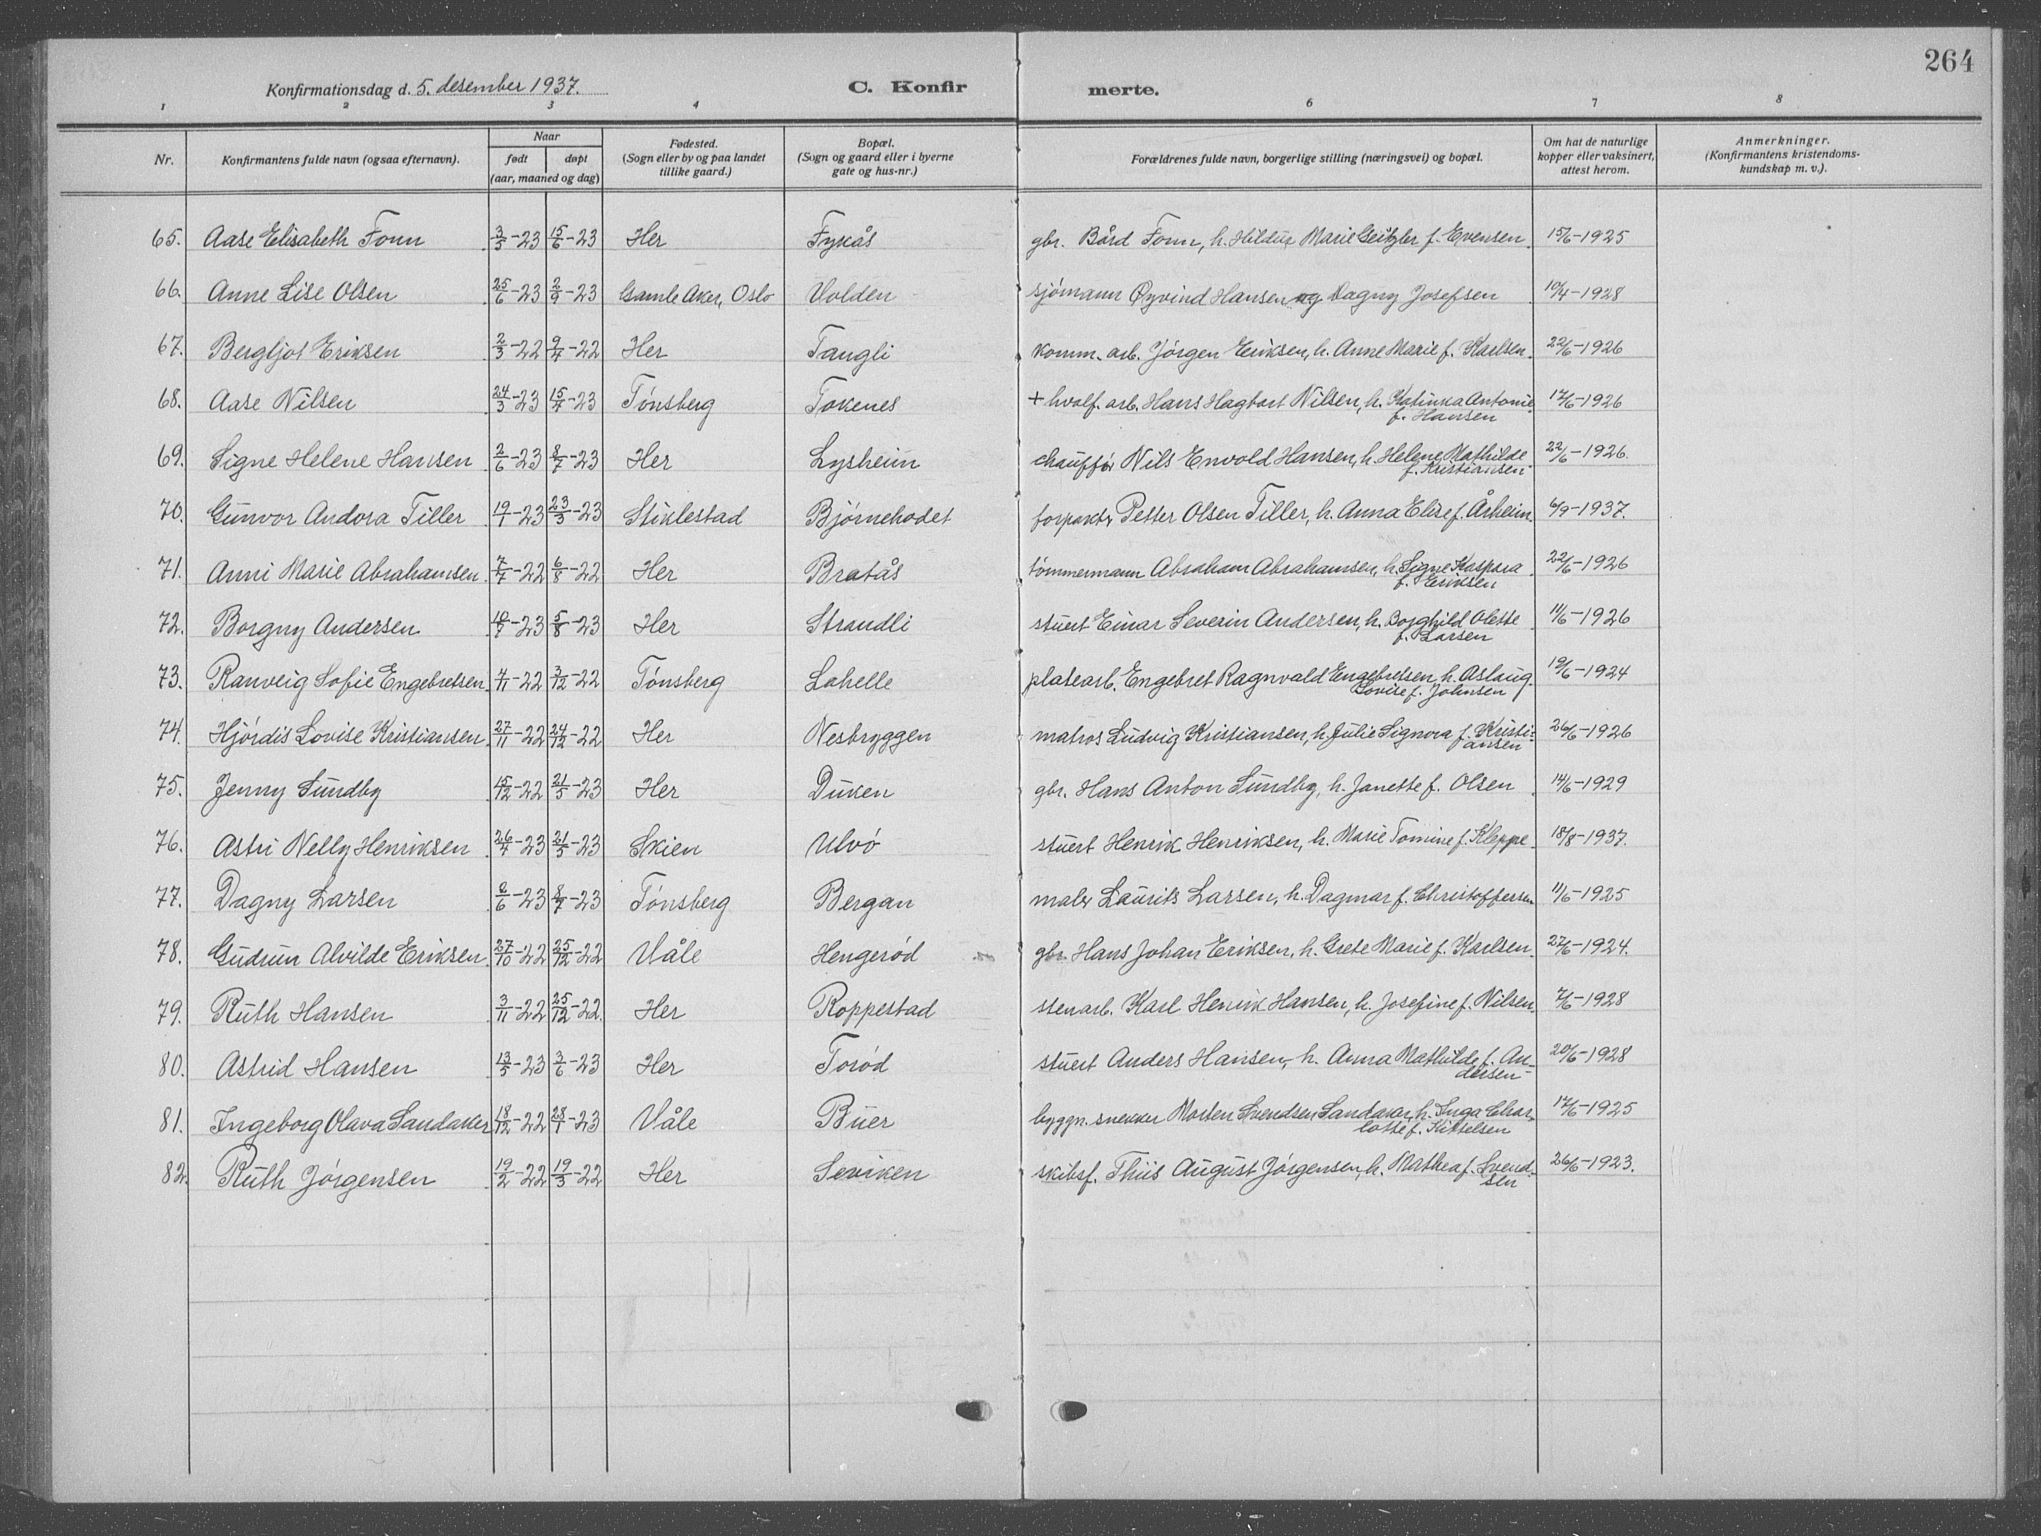 264
Konfirmationsdag d. 5. desember 1937. C. Konfirmerte.
1 2 3 4 6 7 8
Nr. Konfirmantens fulde navn (ogsaa efternavn). Naar født døpt (aar, maaned og dag) Fødested. (Sogn eller by og paa landet tillike gaard.) Bopæl. (Sogn og gaard eller i byerne gate og hus-nr.) Forældrenes fulde navn, borgerlige stilling (næringsvei) og bopæl. Om hat de naturlige kopper eller vaksinert, attest herom. Anmerkninger. (Konfirmantens kristendomskundskap m. v.).
65. Aase Elisabeth Fonn 3/5-23 15/6-23 Her Fykås gbr. Bård Fonn, h. Hildur Marie Geitzler f. Evensen 15/6-1925
66. Anne Lise Olsen 25/6-23 2/9-23 Gamle Aker, Oslo Volden sjömann Øyvind Hansen og Dagny Josefsen 10/4-1928
67. Bergljot Eriksen 2/3-22 9/4-22 Her Tangli komm. arb. Jörgen Eriksen, h. Anne Marie f. Karlsen. 22/6-1926
68. Aase Nilsen 24/3-23 15/4-23 Tønsberg Tokenes + hvalf. arb. Hans Hagbart Nilsen, h. Katinka Antonie
f. Hansen 17/6-1926
69. Signe Helene Hansen 2/6-23 8/7-23 Her Lysheim chauffør Nils Envold Hansen, h. Helene Mathilde
f. Kristiansen 22/6-1926.
70. Gunvor Andora Tiller 19/1-23 23/3-23 Stiklestad Bjørnehodet forpakter Petter Olsen Tiller, h. Anna Elise f. Årheim. 6/9-1937.
71. Anni Marie Abrahamsen 7/7-22 6/8-22 Her Bratås tömmermann Abraham Abrahamsen, h. Signe Kaspara
f. Eriksen 22/6-1926
72. Borgny Andersen 10/7-23 5/8-23 Her Strandli stuert Einar Severin Andersen, h. Borghild Olette
f. Larsen 11/6-1926
73. Ranveig Sofie Engebretsen 4/11-22 3/12-22 Tønsberg Lahelle platearb. Engebret Ragnvald Engebretsen, h. Aslaug
Lovise f. Johnsen 19/6-1924
74. Hjördis Lovise Kristiansen 27/11-22 24/12-22 Her Nesbryggen matros Ludvig Kristiansen, h. Julie Signora f. Kristi-
ansen 26/6-1926
75. Jenny Sundby 15/12-22 21/5-23 Her Duken gbr. Hans Anton Sundby, h. Janette f. Olsen 14/6-1929
76. Astri Nelly Henriksen 26/4-23 21/5-23 Skien Ulvö stuert Henrik Henriksen, h. Marie Tomine f. Kleppe 18/8-1937.
77. Dagny Larsen 2/6-23 8/7-23 Tønsberg Bergan maler Laurits Larsen, h. Dagmar f. Christoffersen 11/6-1925
78. Gudrun Alvilde Eriksen 27/10-22 25/12-22 Våle Hengerød gbr. Hans Johan Eriksen, h. Grete Marie f. Karlsen. 27/6-1924.
79. Ruth Hansen 3/11-22 25/12-22. Her Roppestad stenarb. Karl Henrik Hansen, h. Josefine f. Nilsen. 7/6-1928
80. Astrid Hansen 13/5-23 3/6-23 Her Torød stuert Anders Hansen, h. Anna Mathilde f. An-
dersen 20/6-1928
81. Ingeborg Olava Sandaker 18/12-22 28/1-23 Våle Buer byggn. snekker Morten Svendsen Sandaker, h. Inga Char-
lotte f. Kittelsen 17/6-1925
82. Ruth Jørgensen 19/2-22 19/3-22 Her Seviken skibsf. Thiis August Jørgensen, h. Mathea f. Svend-
sen 26/6-1923.